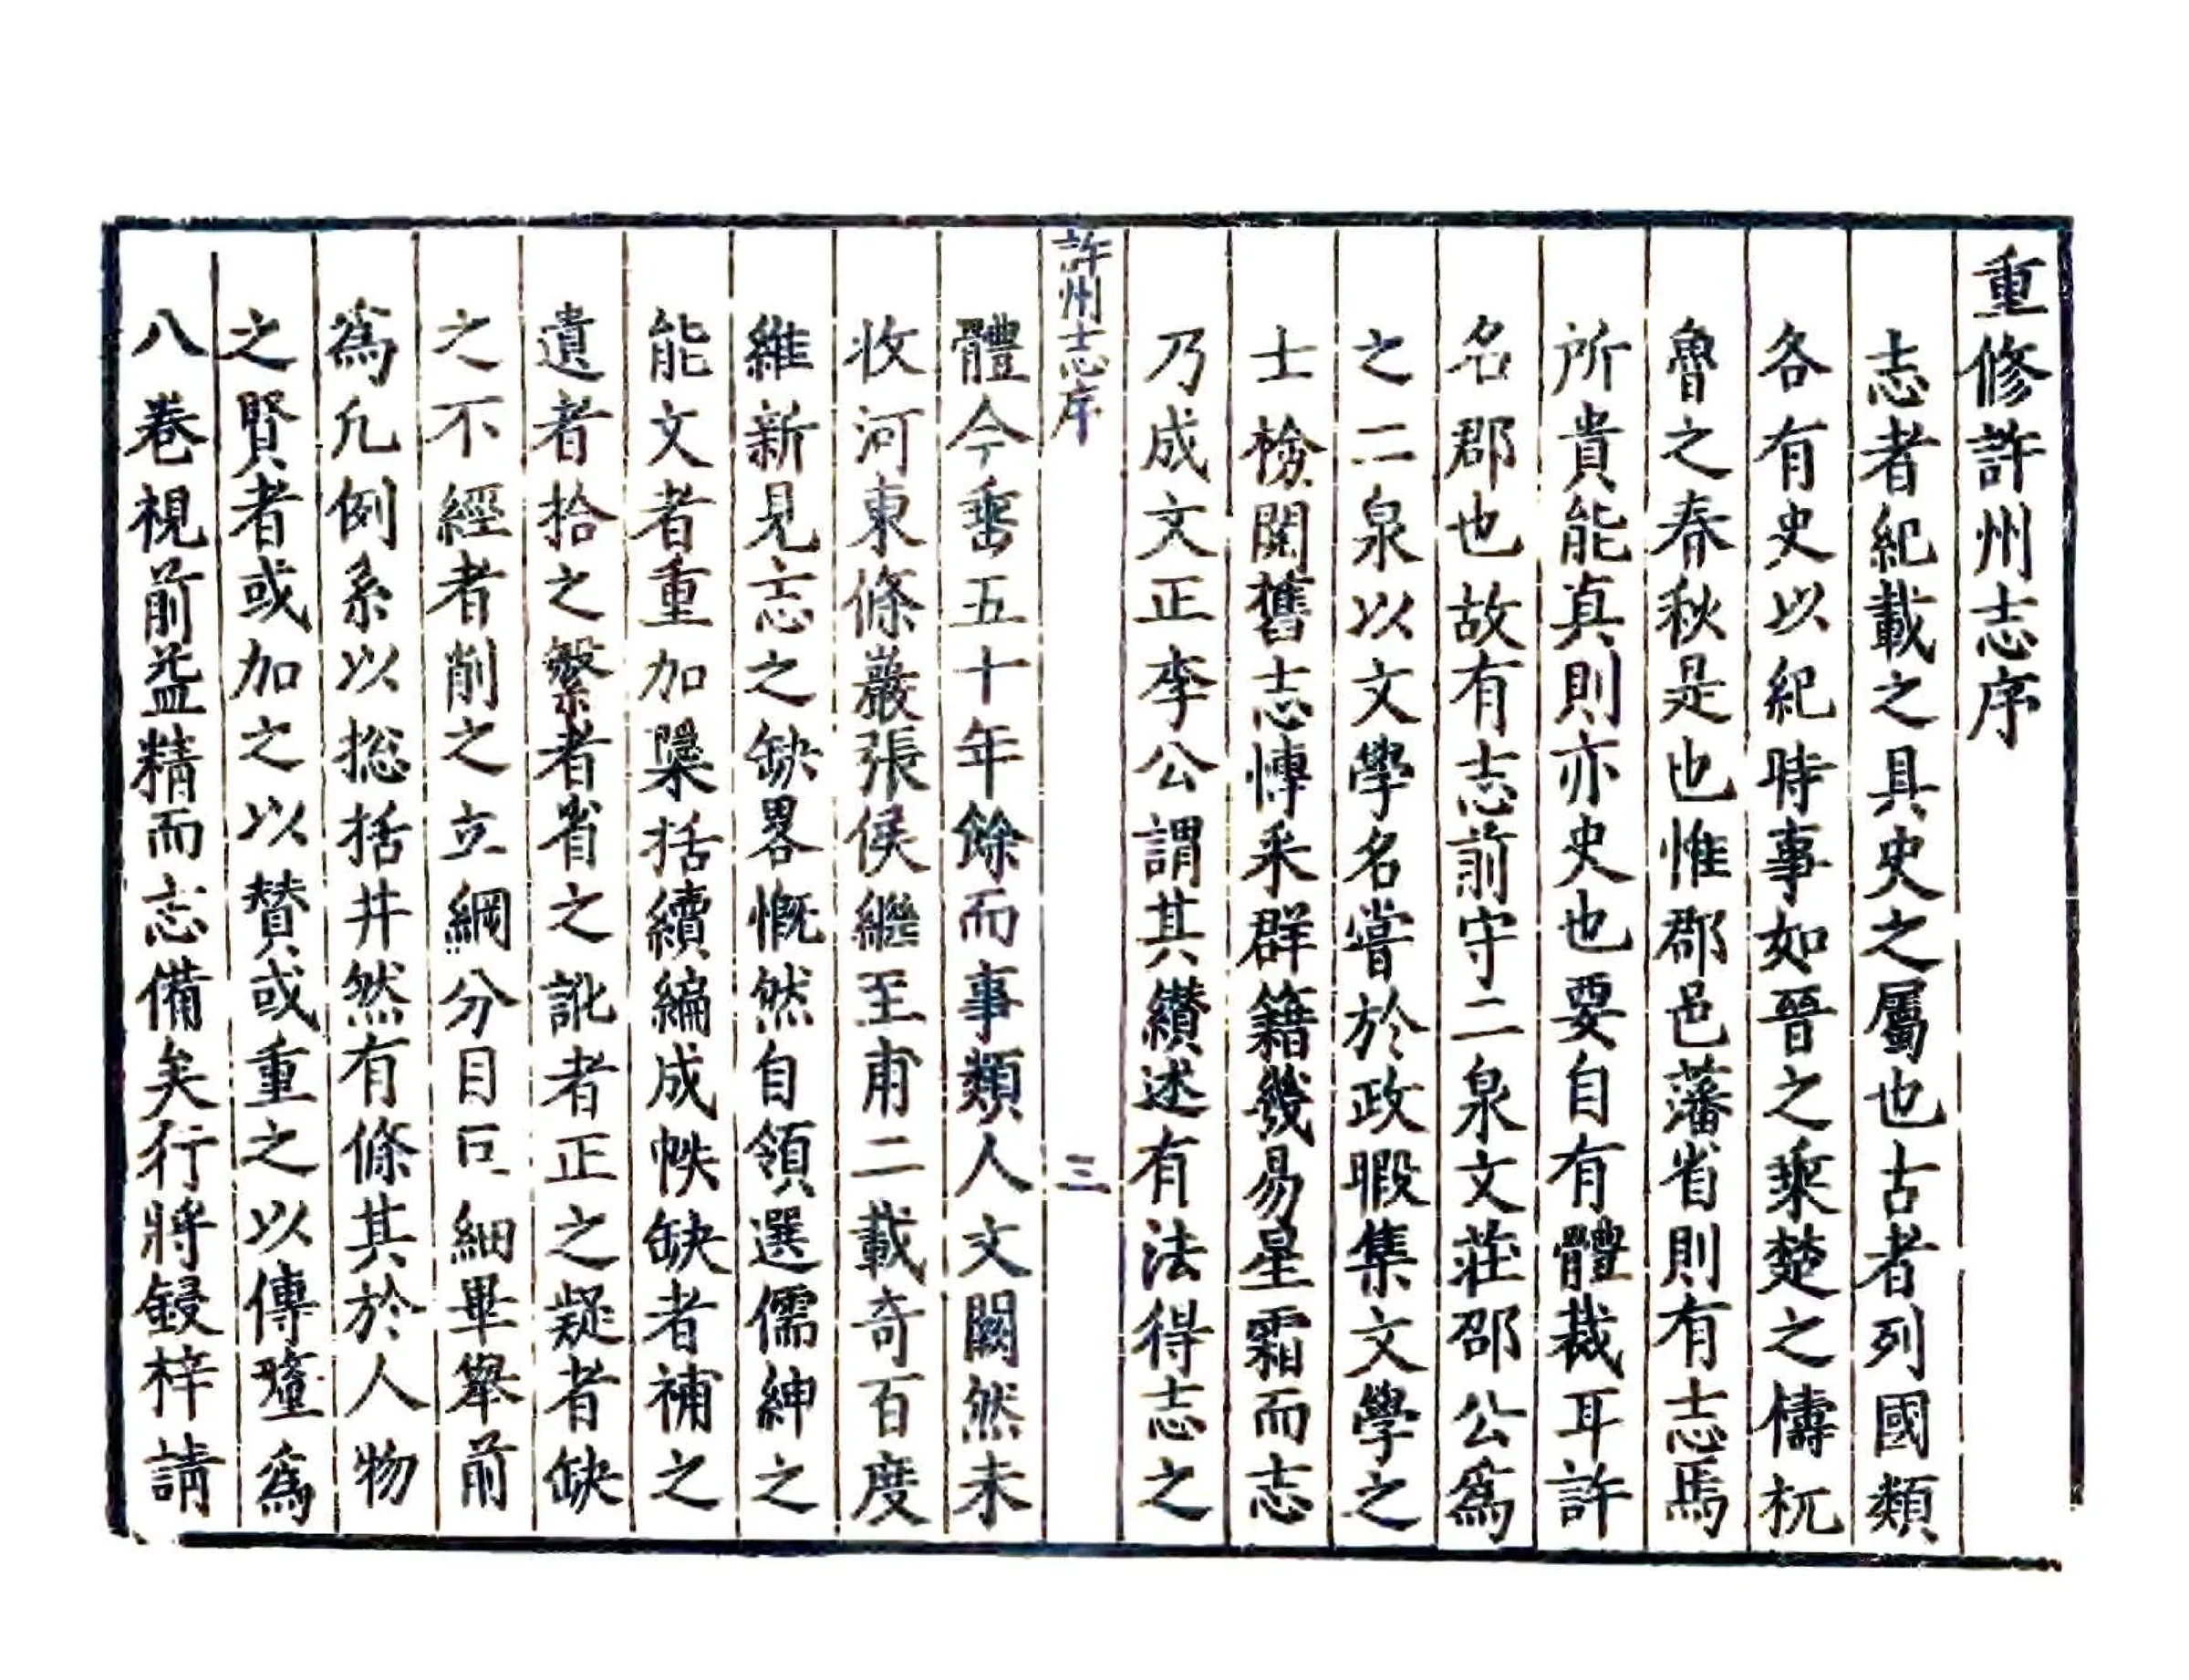 重修許州志序
志者紀載之具史之屬也古者列國類
各有史以紀時事如晉之乘楚之檮杌
魯之春秋是也惟郡邑藩省則有志焉
所貴能真則亦史也要自有體裁耳許
名郡也故有志前守二泉文莊邵公爲
之二泉以文學名嘗於政暇集文學之
士檢閱舊志愽采群籍幾易星霜而志
乃成文正李公謂其纘述有法得志之
許州志序
三
體今垂五十年餘而事類人文闕然未
收河東條巖張侯繼至甫二載奇百度
維新見志之缺畧慨然自領選儒紳之
能文者重加檃括續編成帙缺者補之
遺者拾之繁者省之訛者正之疑者缺
之不經者削之立綱分目巨細畢舉前
爲凡例系以総括井然有條其於人物
之賢者或加之以贊或重之以傳釐爲
八卷視前益精而志備矣行將鋟梓請